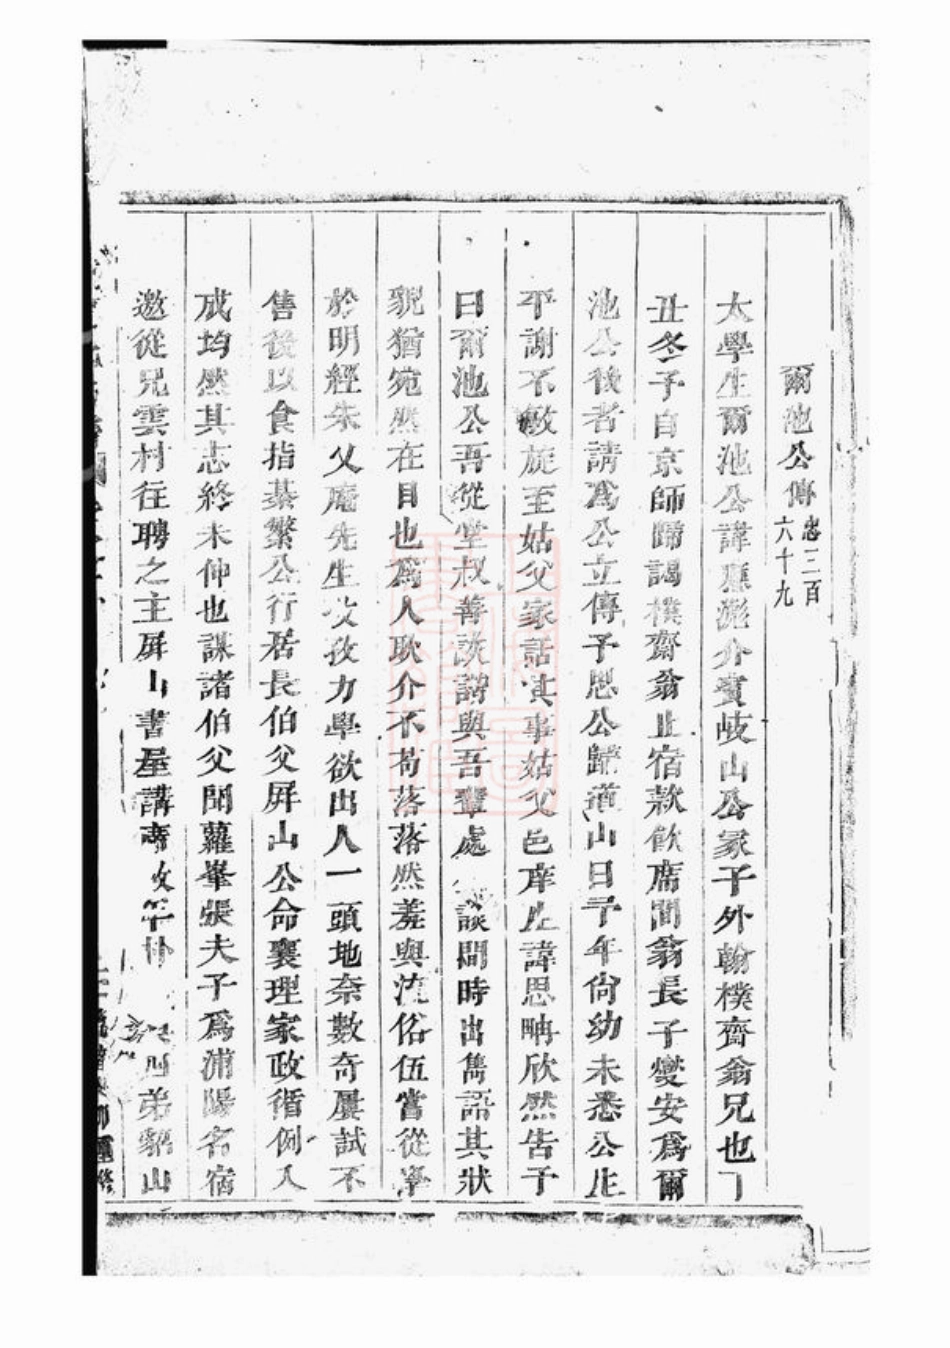 爾池公傳忠三百六十九
太學生爾池公諱應澎介賓岐山公冢子外翰樸齋翁兄也
丑冬予自京師歸謁樸齋翁止宿款飲席間翁長子燮安爲爾
池公後者請爲公立傳予思公歸道山日予年尙幼未悉公生
平謝不敏旋至姑父家話其事姑父邑庠生諱思聃欣然告予
曰爾池公吾從堂叔善談謔與吾輩處談間時出雋語其狀
貌猶宛然在目也爲人耿介不苟落落然羞與流俗伍嘗從學
於明經朱父庵先生孜孜力學欲出人一頭地奈數奇屢試不
售後以食指綦繁公行居長伯父屏山公命襄理家政循例入
成均然其志終未伸也謀諸伯父聞蘿峯張夫子爲浦陽名宿
邀從兄雲村往聘之主屏山書屋講席弟山